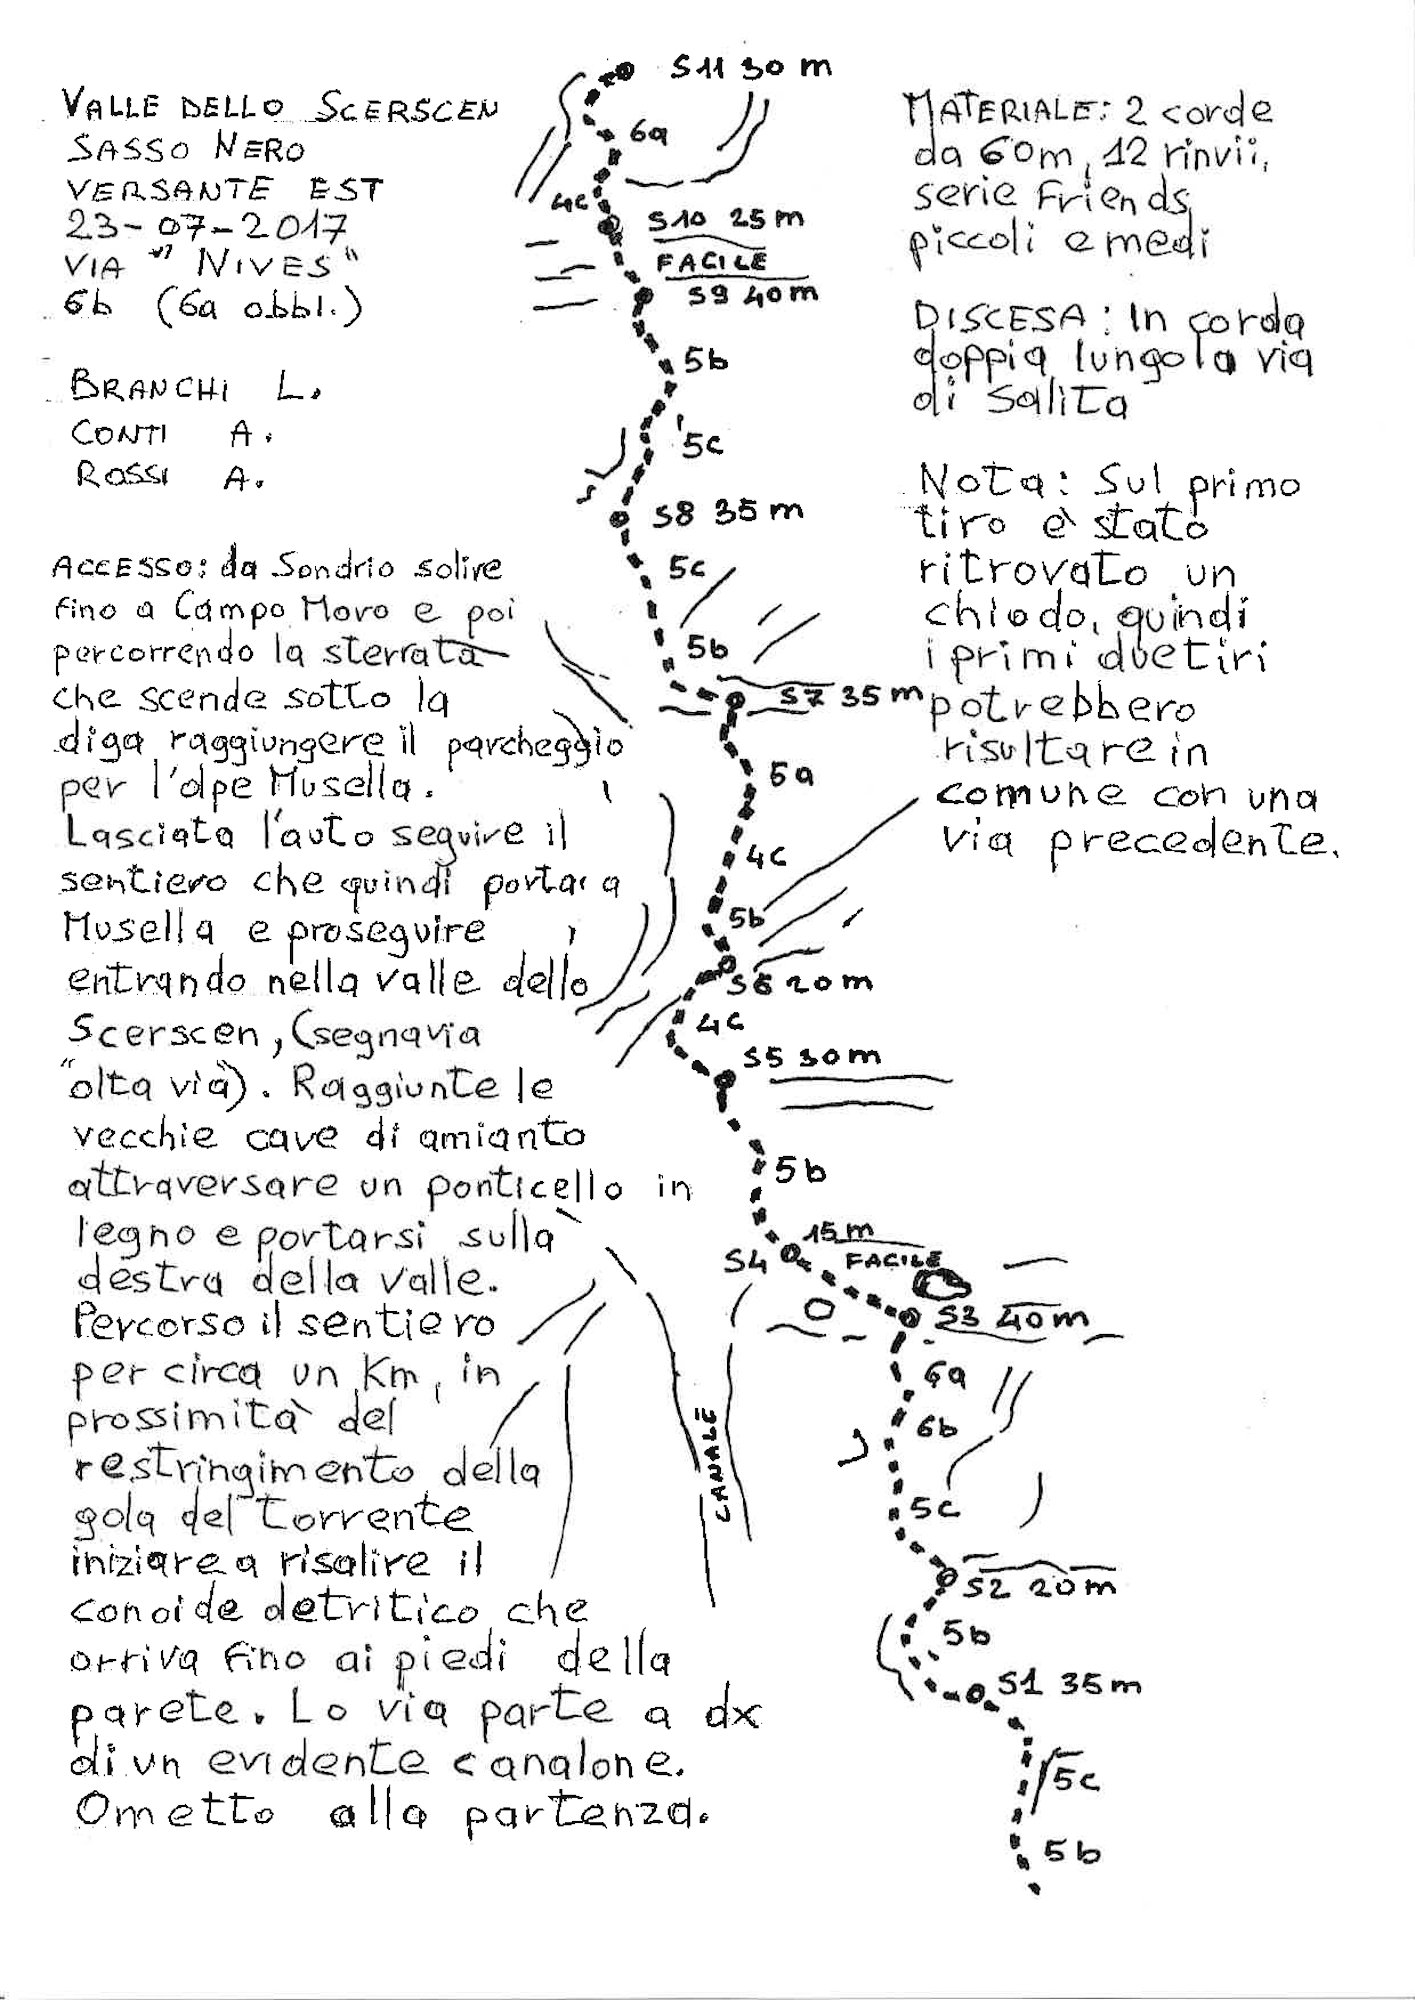 VALLE DELLO SCERSCEN
SASSO NERO
VERSANTE EST
23-07-2017
VIA "NIVES"
6b (6a obbl.)
BRANCHI L.
CONTI A.
ROSSI A.
ACCESSO: da Sondrio salire
fino a Campo Moro e poi
percorrendo la sterrata
che scende sotto la
diga raggiungere il parcheggio
per l'alpe Musella.
Lasciata l'auto seguire il
sentiero che quindi porta a
Musella e proseguire
entrando nella valle dello
Scerscen, (segnavia
"alta via"). Raggiunte le
vecchie cave di amianto
attraversare un ponticello in
legno e portarsi sulla
destra della valle.
Percorso il sentiero
per circa un Km, in
prossimità del
restringimento della
gola del torrente
iniziare a risalire il
conoide detritico che
arriva fino ai piedi della
parete. La via parte a dx
di un evidente canalone.
Ometto alla partenza.
S11 30 m
6a
4c
S10 25 m
FACILE
S9 40 m
5b
5c
S8 35 m
5c
5b
S7 35 m
5a
4c
5b
S6 20 m
4c
S5 30 m
5b
15 m
S4
FACILE
S3 40 m
6a
6b
5c
CANALE
S2 20 m
5b
S1 35 m
5c
5b
MATERIALE: 2 corde
da 60m, 12 rinvii,
serie Friends,
piccoli e medi
DISCESA: In corda
doppia lungo la via
di salita
Nota: Sul primo
tiro è stato
ritrovato un
chiodo, quindi
i primi due tiri
potrebbero
risultare in
comune con una
via precedente.